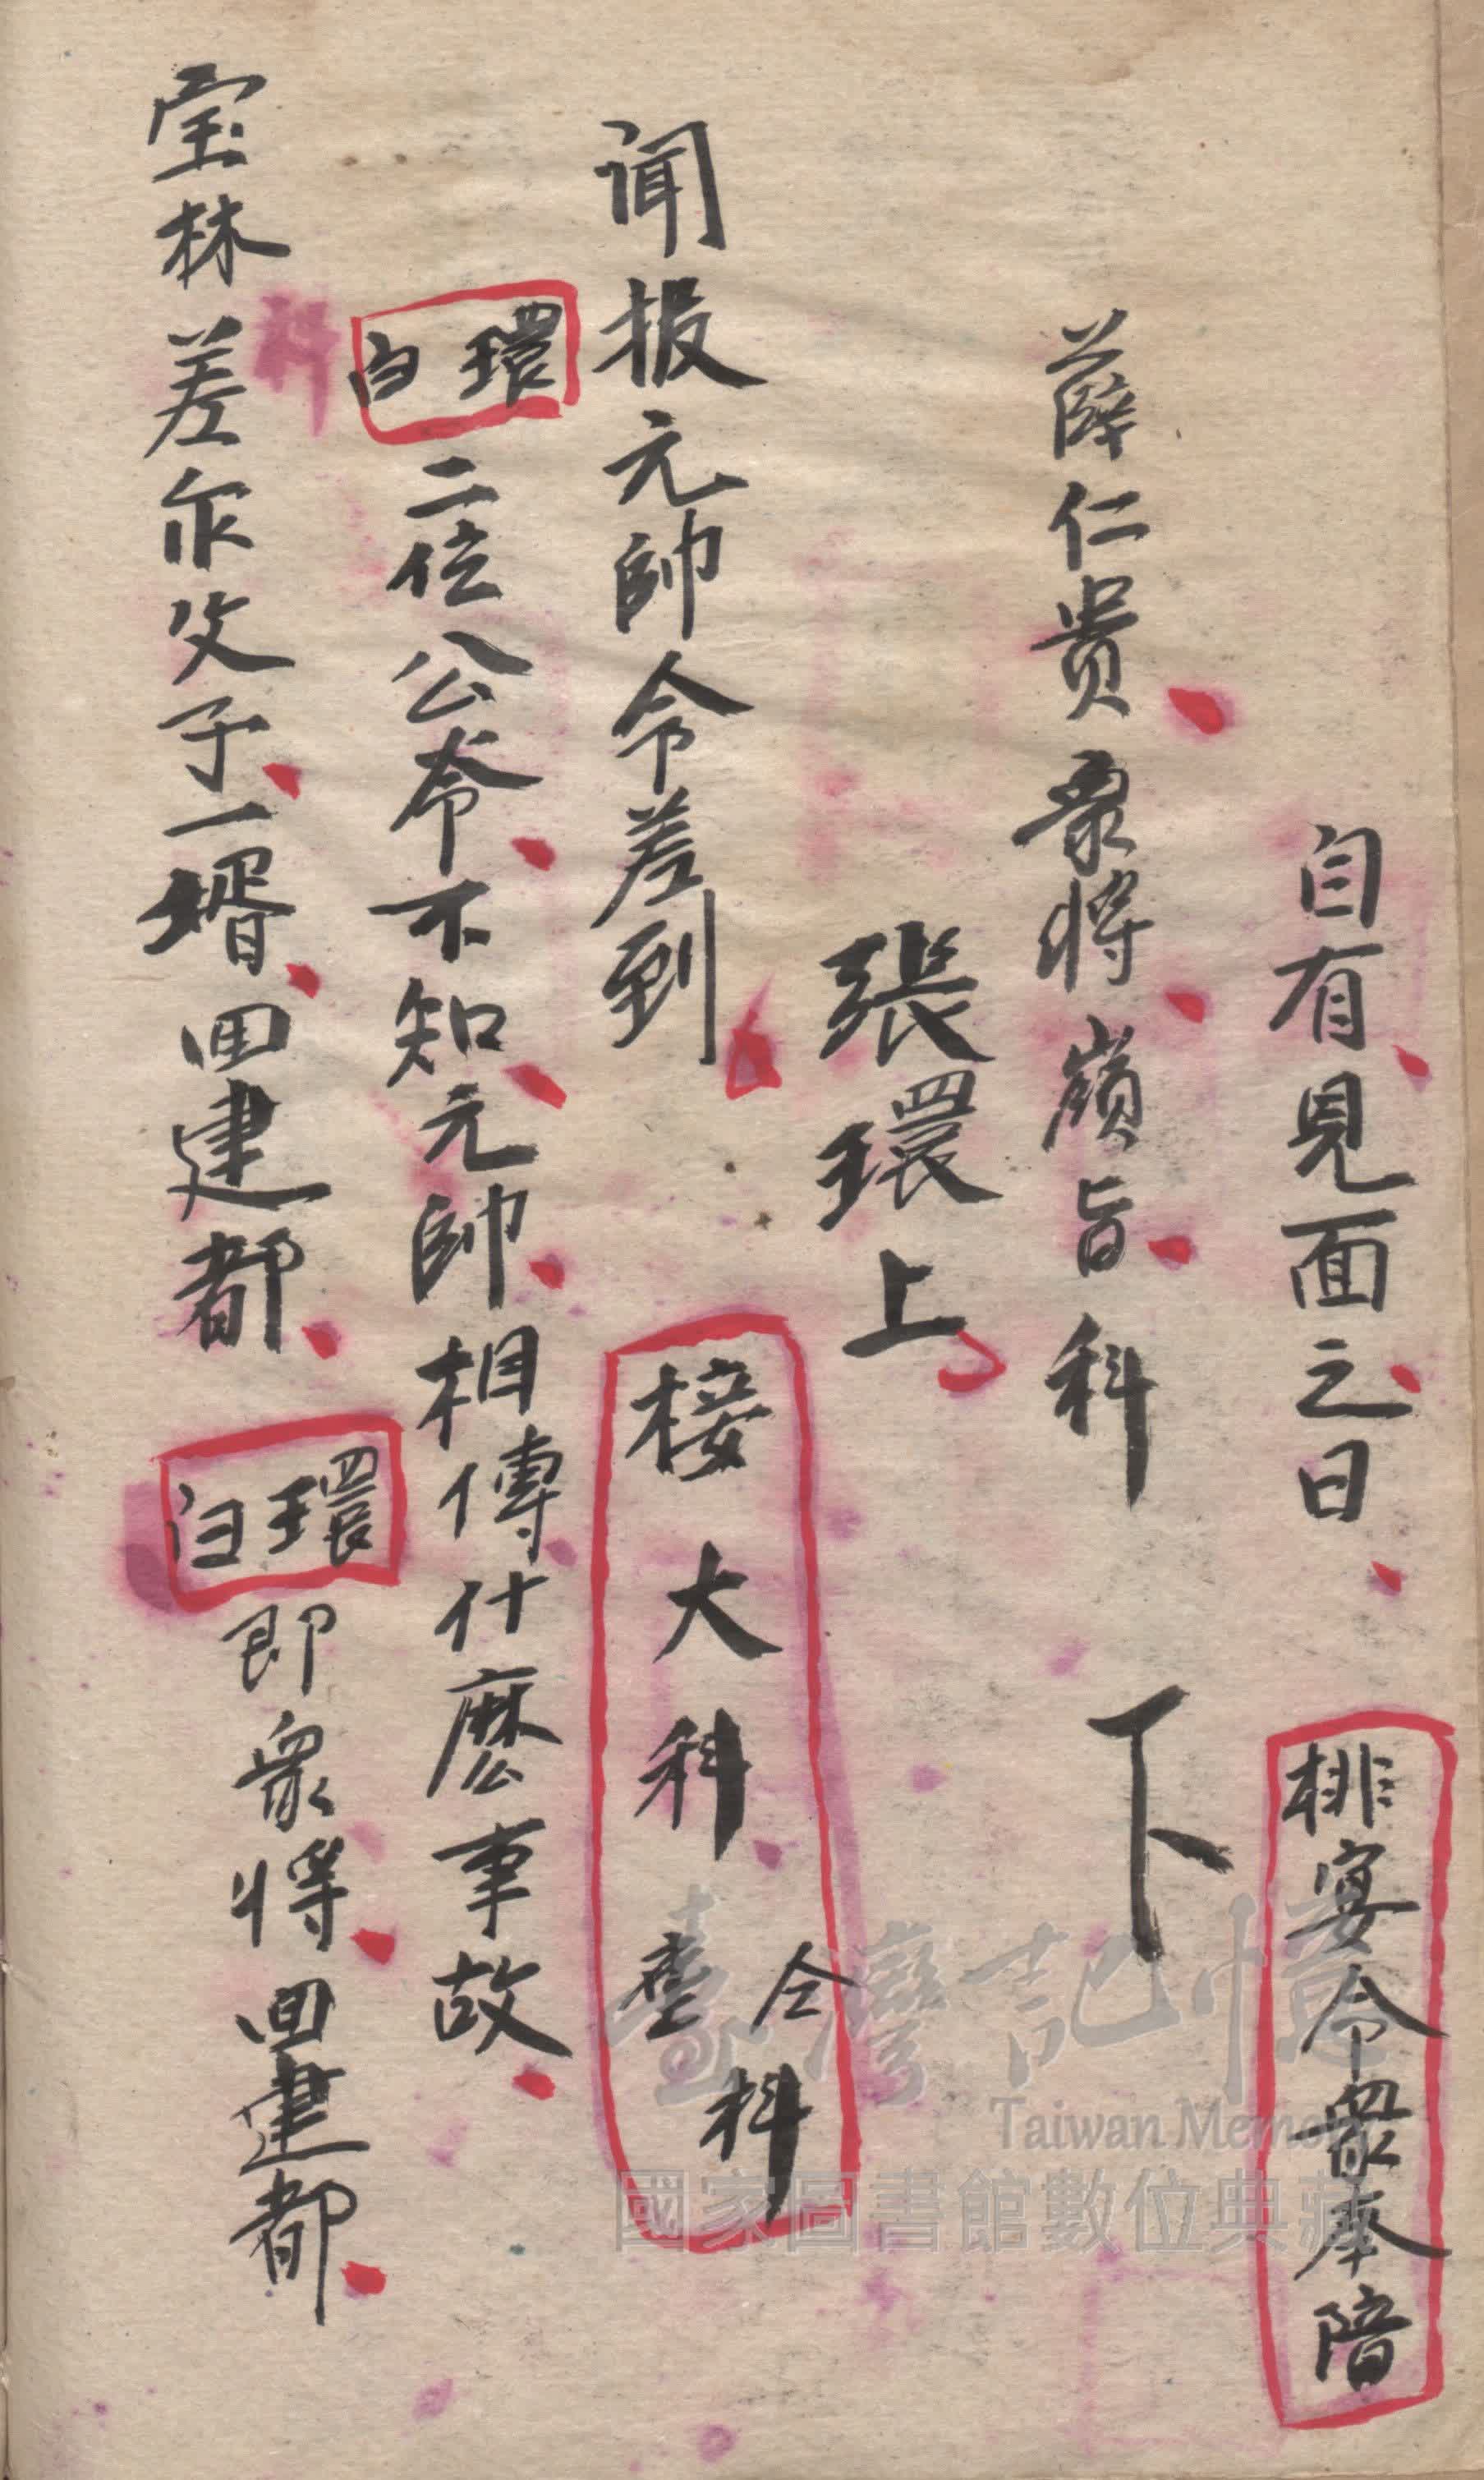 自有見面之日 排宴令衆奉陪
薛仁贵衆将嶺旨科 下
張環上
闻报元帥令差到 接大科 坐科 仝
環白 二位公爷不知元帥相傳什麽事故
宝林差尔父子一壻回建都 環白 即衆将回建都
科
臺灣記憶
Taiwan Memory
國家圖書館數位典藏